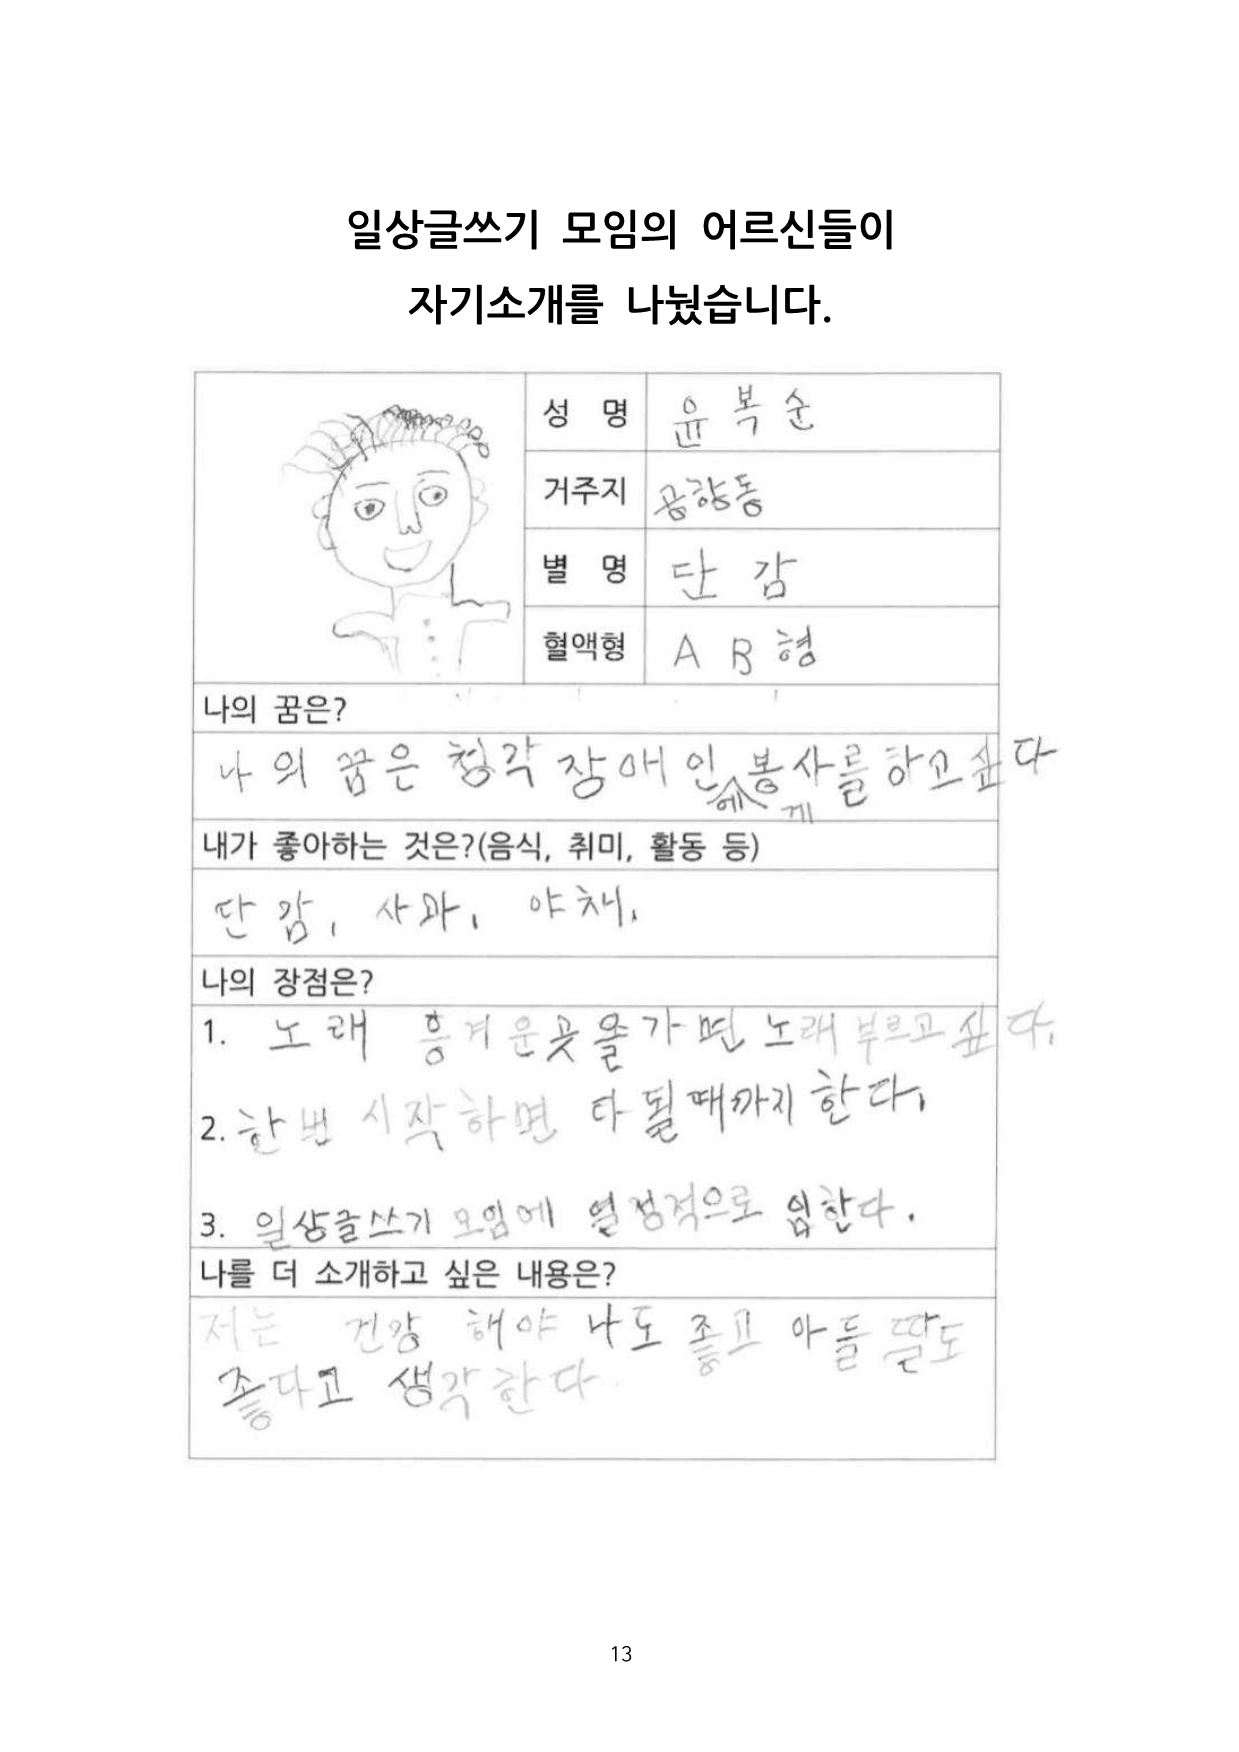 일상글쓰기 모임의 어르신들이
자기소개를 나눴습니다.
성 명 윤복순
거주지 공항동
별 명 단 감
혈액형 A B 형
나의 꿈은?
나의 꿈은 청각 장애인에게 봉사를하고싶다
내가 좋아하는 것은?(음식, 취미, 활동 등)
단감, 사과, 야채,
나의 장점은?
1. 노래 흥겨운곳을가면 노래 부르고 싶다.
2. 한번 시작하면 다 될때까지 한다.
3. 일상글쓰기 모임에 열정적으로 임한다.
나를 더 소개하고 싶은 내용은?
저는 건강 해야 나도 좋고 아들 딸도
좋다고 생각한다.
13